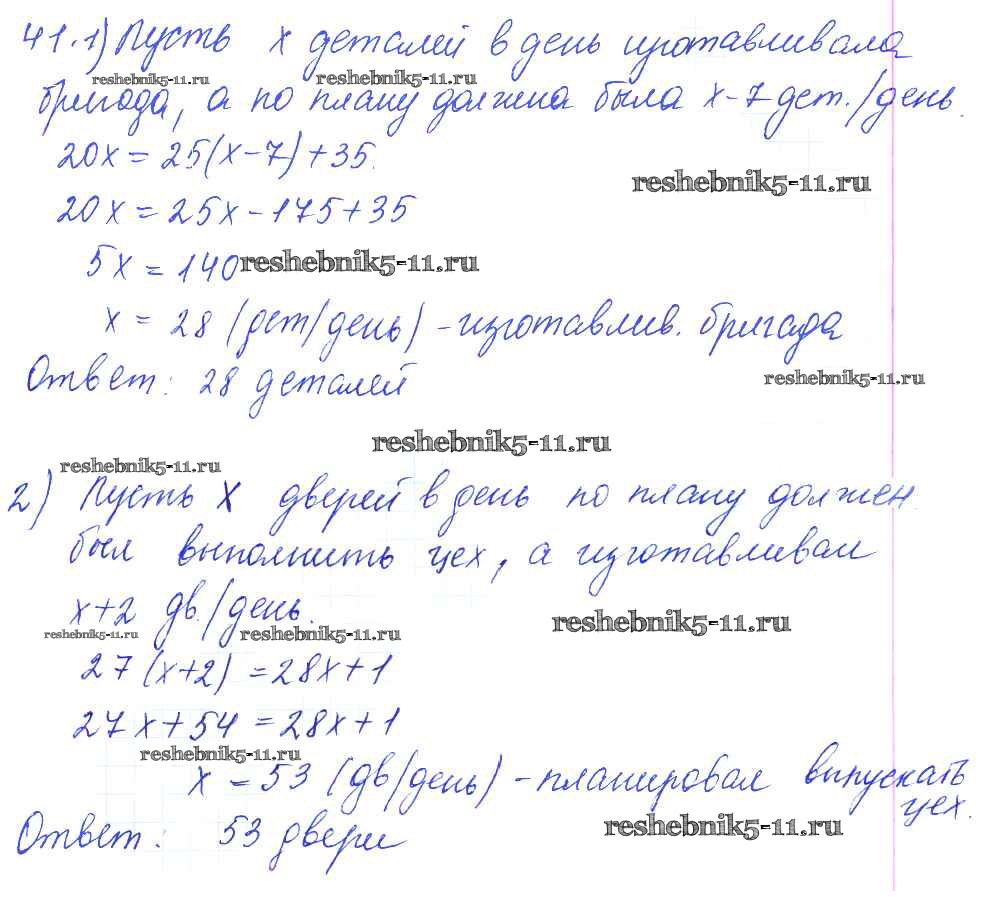 41.1) Пусть x деталей в день изготавливала
reshebnik5-11.ru reshebnik5-11.ru
бригада, а по плану должна была x-7 дет./день.
20x = 25(x-7)+35.
reshebnik5-11.ru
20x = 25x-175+35
5x = 140 reshebnik5-11.ru
x = 28 (дет/день) - изготавлив. бригада
Ответ: 28 деталей
reshebnik5-11.ru
reshebnik5-11.ru
reshebnik5-11.ru
2) Пусть x дверей в день по плану должен
был выполнить цех, а изготавливал
x+2 дв./день.
reshebnik5-11.ru reshebnik5-11.ru reshebnik5-11.ru
27(x+2) = 28x+1
27x+54 = 28x+1
reshebnik5-11.ru
x = 53 (дв/день) - планировал выпускать
цех.
Ответ: 53 двери
reshebnik5-11.ru